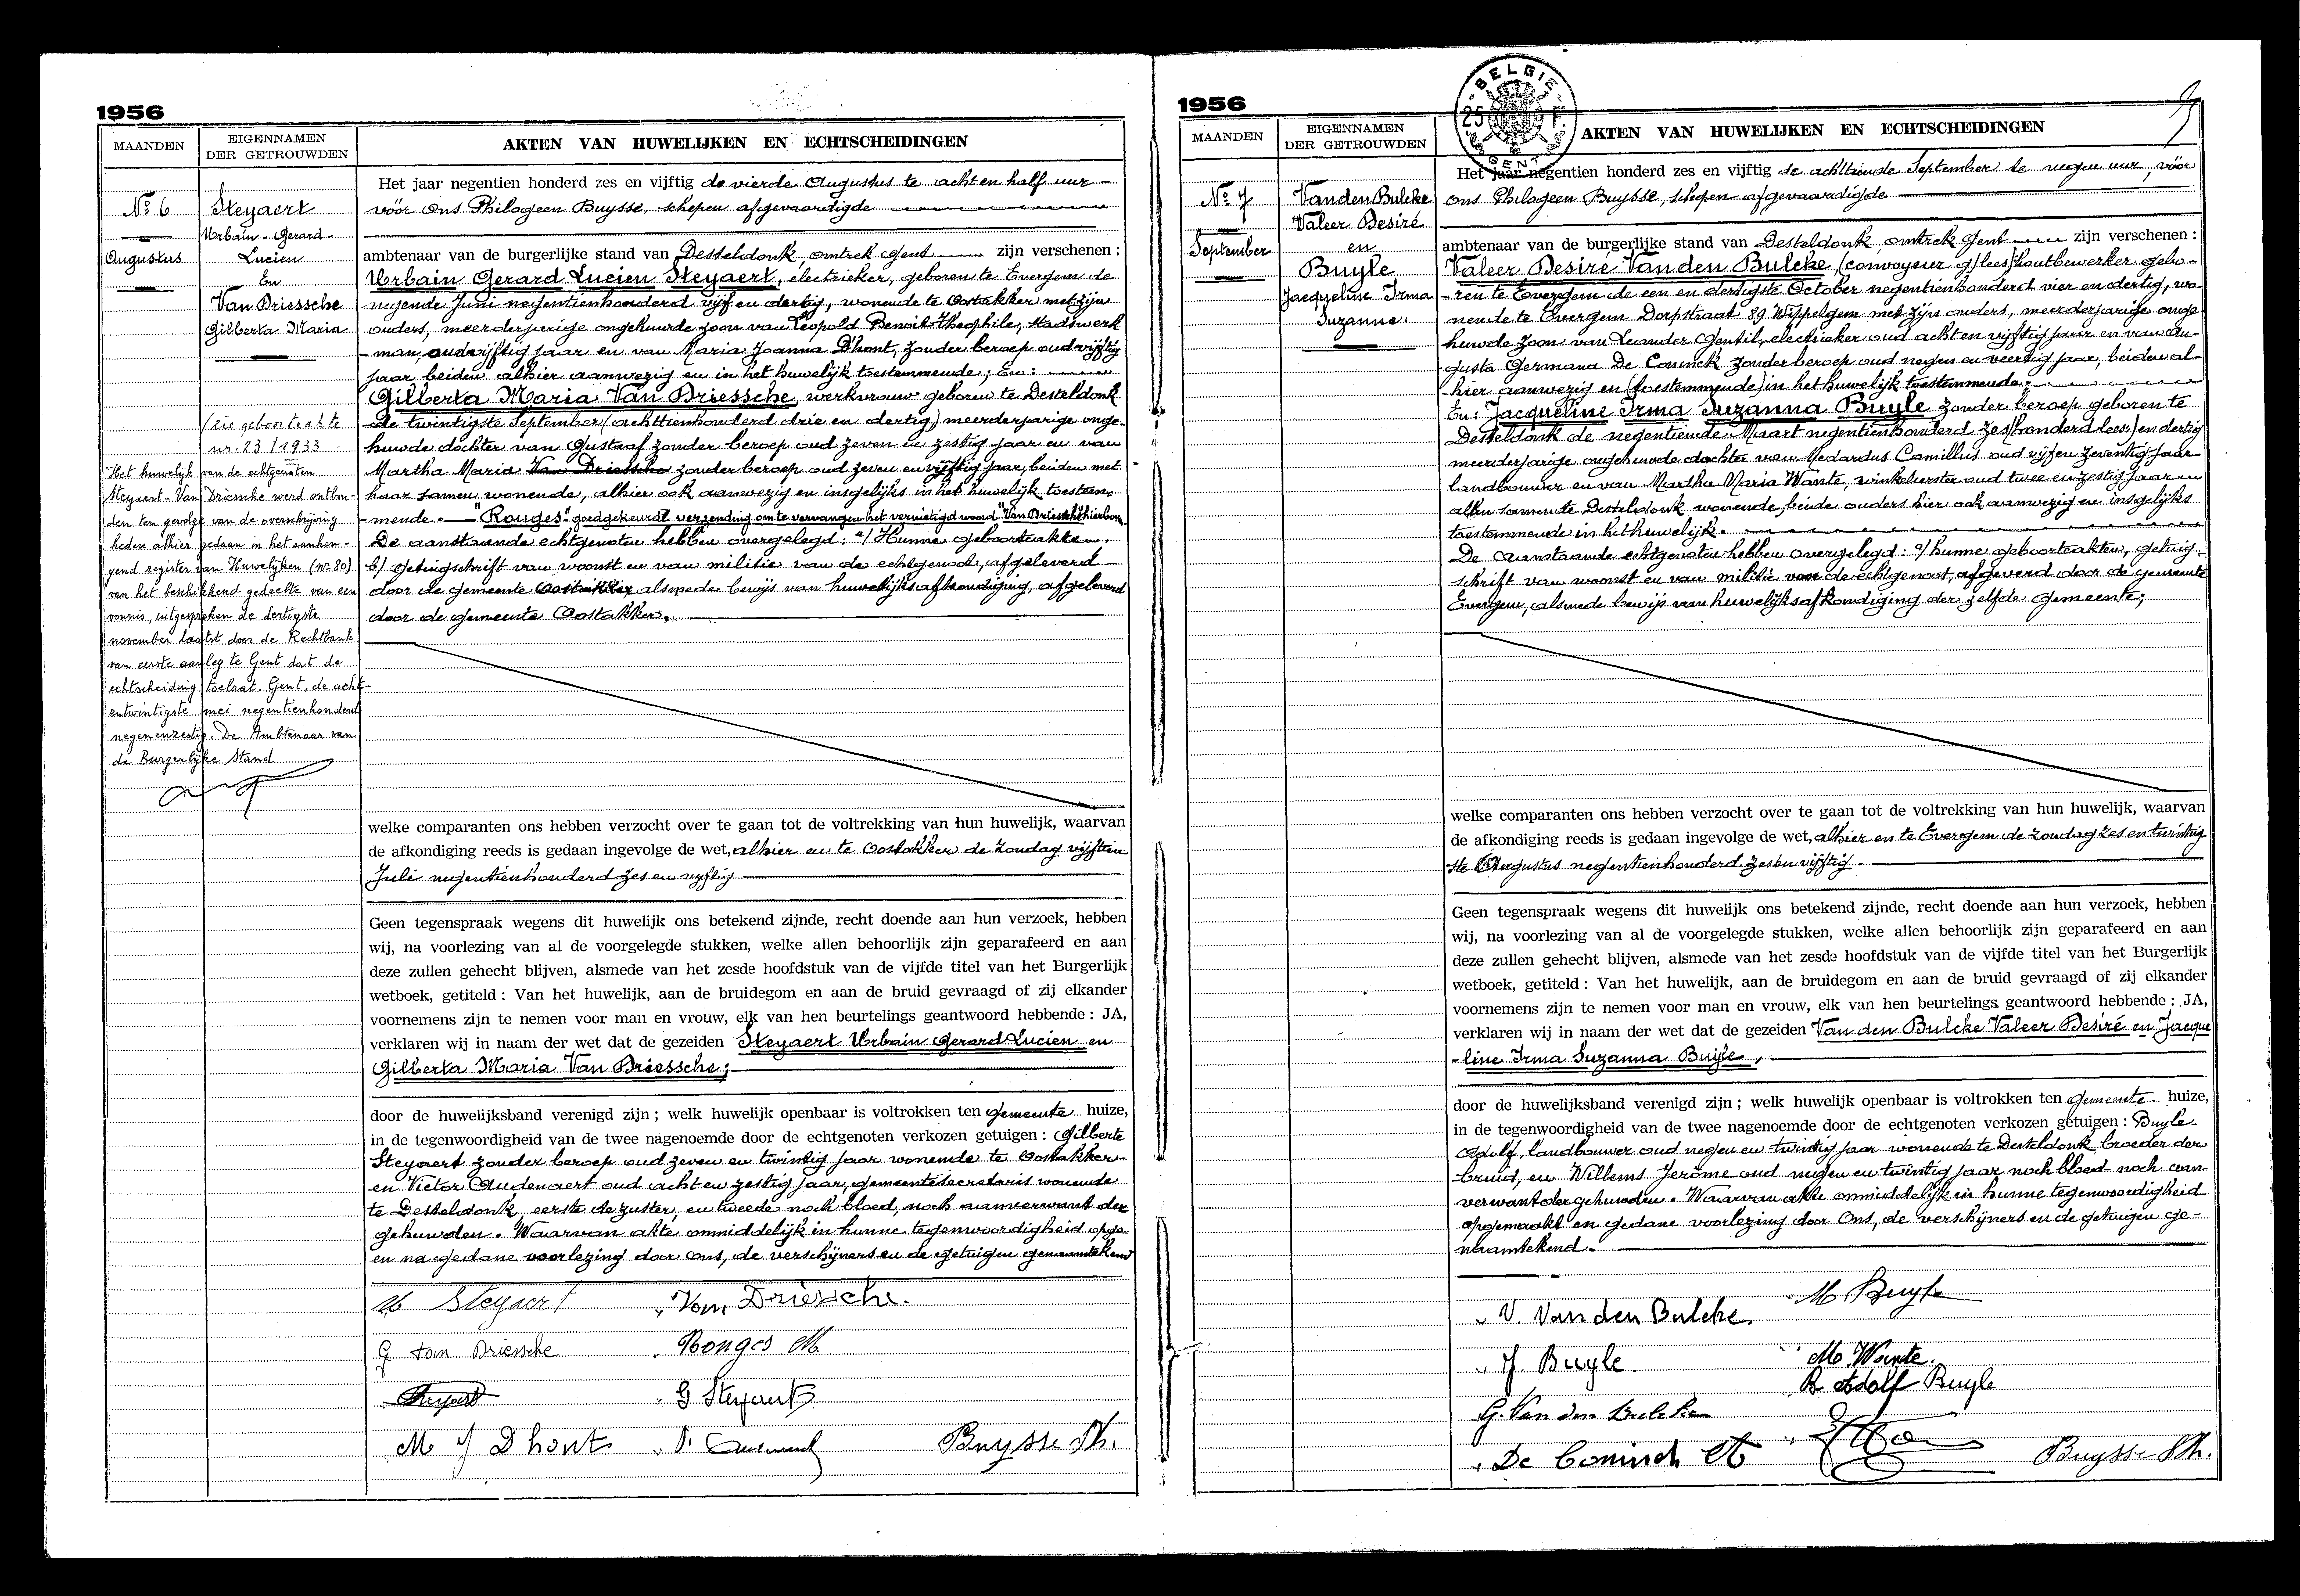 1956
MAANDEN
EIGENNAMEN
DER GETROUWDEN
AKTEN VAN HUWELIJKEN EN ECHTSCHEIDINGEN
Nº 6
Augustus
Steyaert
Urbain Gerard
Lucien
En
Van Driessche
Gilberta Maria
(zie geboorteakte
nr. 23 / 1933
Het huwelijk van de echtgenoten
Steyaert - Van Driessche werd ontbon-
den ten gevolge van de overschrijving
heden alhier gedaan in het aanhan-
gend register van Huwelijken (nr 80)
van het beschikkend gedeelte van een
vonnis, uitgesproken de dertigste
november laatst door de Rechtbank
van eerste aanleg te Gent dat de
echtscheiding toelaat. Gent, de acht-
entwintigste mei negentienhonderd
negenenzestig. De Ambtenaar van
de Burgerlijke Stand
Het jaar negentien honderd zes en vijftig de vierde Augustus te acht en half uur
vóór Ons Philogeen Buysse, schepen afgevaardigde
ambtenaar van de burgerlijke stand van Desteldonk omtrek Gent zijn verschenen :
Urbain Gerard Lucien Steyaert, electrieker, geboren te Evergem de
negende Juni negentienhonderd vijf en dertig, wonende te Oostakker met zijn
ouders, meerderjarige ongehuwde zoon van Leopold Benoit Theophile, stadswerk
-man, oud vijftig jaar en van Maria Joanna D'hont, zonder beroep oud vijftig
jaar beiden alhier aanwezig en in het huwelijk toestemmende; En :
Gilberta Maria Van Driessche, werkvrouw geboren te Desteldonk
de twintigste September (achttienhonderd drie en dertig) meerderjarige onge-
huwde dochter van Gustaaf zonder beroep oud zeven en zestig jaar en van
Martha Maria Van Driessche zonder beroep oud zeven en vijftig jaar, beiden met
haar samen wonende, alhier ook aanwezig en insgelijks in het huwelijk toestem-
mende. "Rouges" goedgekeurde verzending om te vervangen het vernietigd woord "Van Driessche" hierboven
De aanstaande echtgenoten hebben overgelegd : a/ Hunne geboorteakten.
b/ getuigschrift van woonst en van militie van de echtgenoot, afgeleverd
door de gemeente Oostakker alsmede bewijs van huwelijksafkondiging, afgeleverd
door de gemeente Oostakker.
welke comparanten ons hebben verzocht over te gaan tot de voltrekking van hun huwelijk, waarvan
de afkondiging reeds is gedaan ingevolge de wet, alhier en te Oostakker de zondag vijftien
Juli negentienhonderd zes en vijftig
Geen tegenspraak wegens dit huwelijk ons betekend zijnde, recht doende aan hun verzoek, hebben
wij, na voorlezing van al de voorgelegde stukken, welke allen behoorlijk zijn geparafeerd en aan
deze zullen gehecht blijven, alsmede van het zesde hoofdstuk van de vijfde titel van het Burgerlijk
wetboek, getiteld : Van het huwelijk, aan de bruidegom en aan de bruid gevraagd of zij elkander
voornemens zijn te nemen voor man en vrouw, elk van hen beurtelings geantwoord hebbende : JA,
verklaren wij in naam der wet dat de gezeiden Steyaert Urbain Gerard Lucien en
Gilberta Maria Van Driessche;
door de huwelijksband verenigd zijn ; welk huwelijk openbaar is voltrokken ten gemeente huize,
in de tegenwoordigheid van de twee nagenoemde door de echtgenoten verkozen getuigen : Gilberte
Steyaert zonder beroep oud zeven en twintig jaar wonende te Oostakker
en Victor Audenaert oud acht en zestig jaar, gemeentesecretaris wonende
te Desteldonk, eerste de zuster, en tweede noch bloed, noch aanverwant der
gehuwden. Waarvan akte onmiddelijk in hunne tegenwoordigheid opge
en na gedane voorlezing door ons, de verschijners en de getuigen genaamtekend
U Steyaert
Van Driessche.
G Van Driessche
Rouges M
G Steyaert
M J Dhont
Buysse Ph.
1956
BELGIE
25 F.
GENT
MAANDEN
EIGENNAMEN
DER GETROUWDEN
AKTEN VAN HUWELIJKEN EN ECHTSCHEIDINGEN
Nº 7
September
Van den Bulcke
Valeer Desiré
en
Buyle
Jacqueline Irma
Suzanna
Het jaar negentien honderd zes en vijftig de achttiende September te negen uur, vóór
ons Philogeen Buysse, schepen afgevaardigde
ambtenaar van de burgerlijke stand van Desteldonk omtrek Gent zijn verschenen :
Valeer Desiré Van den Bulcke, (convoyeur g/lees) houtbewerker gebo-
-ren te Evergem de een en dertigste October negentienhonderd vier en dertig, wo-
nende te Evergem Dorpstraat 89 Wippelgem met zijn ouders, meerderjarige onge
huwde zoon van Leander Gentil, electrieker oud acht en vijftig jaar en van Au-
gusta Germana De Coninck zonder beroep oud negen en veertig jaar, beiden al-
hier aanwezig en (toestemmende) in het huwelijk toestemmende.
En : Jacqueline Irma Suzanna Buyle zonder beroep geboren te
Desteldonk de negentiende Maart negentienhonderd zes (honderd lees:) en dertig
meerderjarige ongehuwde dochter van Medardus Camillus oud vijf en zeventig jaar
landbouwer en van Martha Maria Wante, winkelierster oud twee en zestig jaar
allen samen te Desteldonk wonende, beide ouders hier ook aanwezig en insgelijks
toestemmende in het huwelijk.
De aanstaande echtgenoten hebben overgelegd : a/ hunne geboorteakten, getuig-
schrift van woonst en van militie voor de echtgenoot, afgeverd door de gemeente
Evergem, alsmede bewijs van huwelijksafkondiging der zelfde gemeente;
welke comparanten ons hebben verzocht over te gaan tot de voltrekking van hun huwelijk, waarvan
de afkondiging reeds is gedaan ingevolge de wet, alhier en te Evergem de zondag zes en twintig
ste Augustus negentienhonderd zes en vijftig.
Geen tegenspraak wegens dit huwelijk ons betekend zijnde, recht doende aan hun verzoek, hebben
wij, na voorlezing van al de voorgelegde stukken, welke allen behoorlijk zijn geparafeerd en aan
deze zullen gehecht blijven, alsmede van het zesde hoofdstuk van de vijfde titel van het Burgerlijk
wetboek, getiteld : Van het huwelijk, aan de bruidegom en aan de bruid gevraagd of zij elkander
voornemens zijn te nemen voor man en vrouw, elk van hen beurtelings geantwoord hebbende : JA,
verklaren wij in naam der wet dat de gezeiden Van den Bulcke Valeer Desiré en Jacque
-line Irma Suzanna Buyle,
door de huwelijksband verenigd zijn ; welk huwelijk openbaar is voltrokken ten gemeente huize,
in de tegenwoordigheid van de twee nagenoemde door de echtgenoten verkozen getuigen : Buyle
Adolf, landbouwer oud negen en twintig jaar wonende te Desteldonk broeder der
bruid, en Willems Jerome oud negen en twintig jaar noch bloed- noch aan-
verwant der gehuwden. Waarvan akte onmiddelijk in hunne tegenwoordigheid
opgemaakt en gedane voorlezing door Ons, de verschijners en de getuigen ge-
naamtekend.
V. Van den Bulcke.
M Buyle
J Buyle
M. Wante.
B. Adolf Buyle
G. Van den Bulcke
De Coninck A
Buysse Ph.